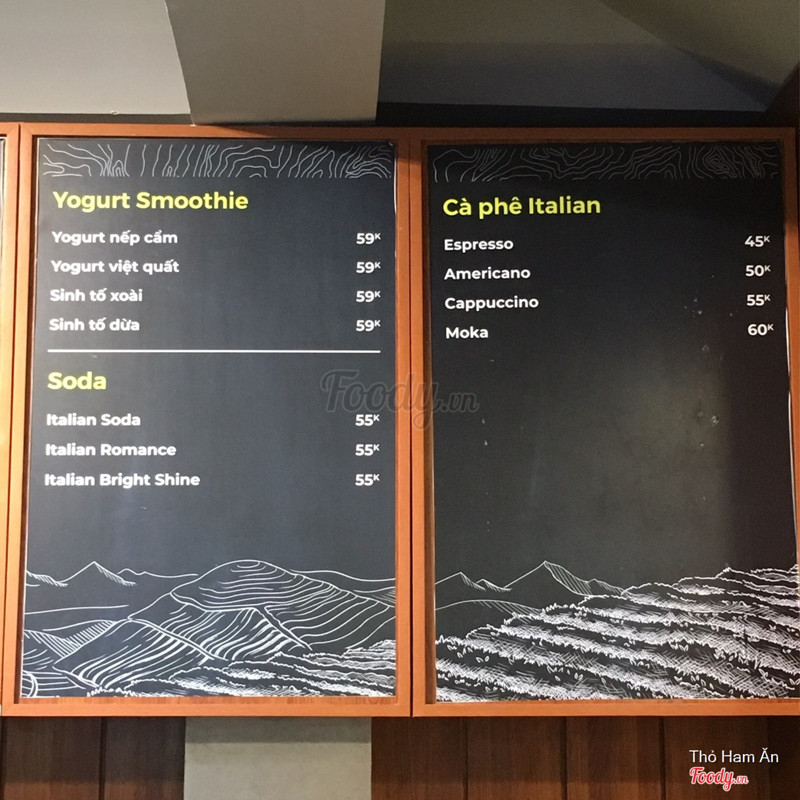 Yogurt Smoothie
Yogurt nếp cẩm 59K
Yogurt việt quất 59K
Sinh tố xoài 59K
Sinh tố dừa 59K
Soda
Italian Soda 55K
Italian Romance 55K
Italian Bright Shine 55K
Cà phê Italian
Espresso 45K
Americano 50K
Cappuccino 55K
Moka 60K
Foody.vn
Thỏ Ham Ăn
Foody.vn